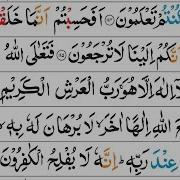 كُنْتُمْ تَعْلَمُوْنَ ۝١١٤ اَفَحَسِبْتُمْ اَنَّمَا خَلَقْ
نَّكُمْ اِلَيْنَا لَا تُرْجَعُوْنَ ۝١١٥ فَتَعٰلَى اللّٰهُ
لَاۤ اِلٰهَ اِلَّا هُوَ ۚ رَبُّ الْعَرْشِ الْكَرِيْمِ
مَعَ اللّٰهِ اِلٰهًا اٰخَرَ ۙ لَا بُرْهَانَ لَهٗ بِهٖ
عِنْدَ رَبِّهٖ ؕ اِنَّهٗ لَا يُفْلِحُ الْكٰفِرُوْنَ